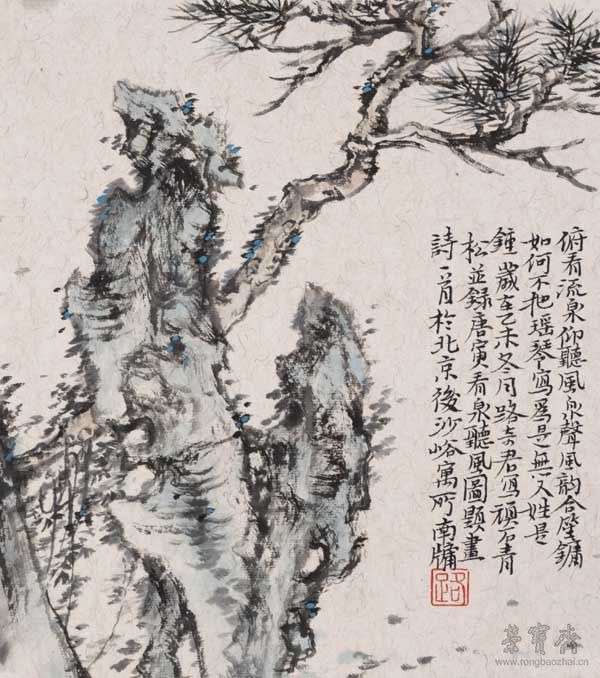 俯看流泉仰聽風泉聲風韵合笙鏞
如何不把瑶琴寫爲是無人姓是
鍾歲在乙未冬月路奇君寫頑石青
松並録唐寅看泉聽風圖題畫
詩一首於北京後沙峪寓所南牖
路
榮寶齋
www.rongbaozhai.cn